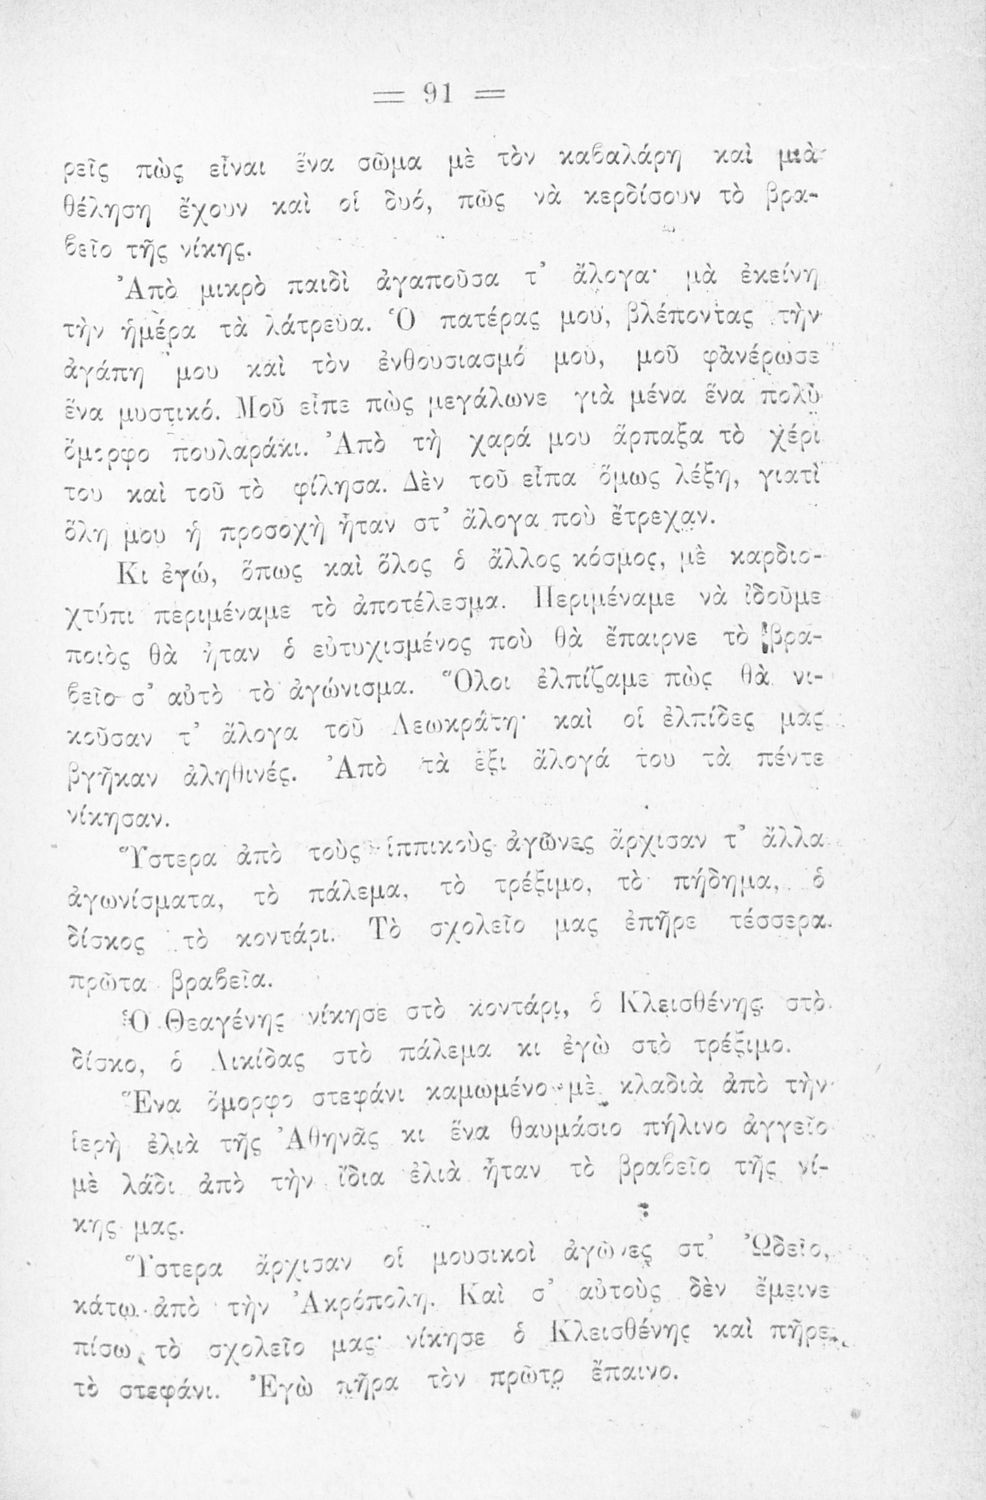 = 91 =
ρεῖς πὼς εἶναι ἕνα σῶμα μὲ τὸν καβαλάρη καὶ μιὰ
θέληση ἔχουν καὶ οἱ δυό, πῶς νὰ κερδίσουν τὸ βρα-
βεῖο τῆς νίκης.
Ἀπὸ μικρὸ παιδὶ ἀγαποῦσα τ᾿ ἄλογα· μὰ ἐκείνη
τὴν ἡμέρα τὰ λάτρευα. Ὁ πατέρας μου, βλέποντας τὴν
ἀγάπη μου καὶ τὸν ἐνθουσιασμό μου, μοῦ φανέρωσε
ἕνα μυστικό. Μοῦ εἶπε πὼς μεγάλωνε γιὰ μένα ἕνα πολὺ
ὄμορφο πουλαράκι. Ἀπὸ τὴ χαρά μου ἅρπαξα τὸ χέρι
του καὶ τοῦ τὸ φίλησα. Δὲν τοῦ εἶπα ὅμως λέξη, γιατὶ
ὅλη μου ἡ προσοχὴ ἦταν στ᾿ ἄλογα ποὺ ἔτρεχαν.
Κι ἐγώ, ὅπως καὶ ὅλος ὁ ἄλλος κόσμος, μὲ καρδιο-
χτύπι περιμέναμε τὸ ἀποτέλεσμα. Περιμέναμε νὰ ἰδοῦμε
ποιὸς θὰ ἦταν ὁ εὐτυχισμένος ποὺ θὰ ἔπαιρνε τὸ βρα-
βεῖο σ᾿ αὐτὸ τὸ ἀγώνισμα. Ὅλοι ἐλπίζαμε πὼς θὰ νι-
κοῦσαν τ᾿ ἄλογα τοῦ Λεωκράτη· καὶ οἱ ἐλπίδες μας
βγῆκαν ἀληθινές. Ἀπὸ τὰ ἕξι ἄλογά του τὰ πέντε
νίκησαν.
Ὕστερα ἀπὸ τοὺς ἱππικοὺς ἀγῶνες ἄρχισαν τ᾿ ἄλλα
ἀγωνίσματα, τὸ πάλεμα, τὸ τρέξιμο, τὸ πήδημα, ὁ
δίσκος τὸ κοντάρι. Τὸ σχολεῖο μας ἐπῆρε τέσσερα
πρῶτα βραβεῖα.
Ὁ Θεαγένης νίκησε στὸ κοντάρι, ὁ Κλεισθένης στὸ
δίσκο, ὁ Λικίδας στὸ πάλεμα κι ἐγὼ στὸ τρέξιμο.
Ἕνα ὄμορφο στεφάνι καμωμένο μὲ κλαδιὰ ἀπὸ τὴν
ἱερὴ ἐλιὰ τῆς Ἀθηνᾶς κι ἕνα θαυμάσιο πήλινο ἀγγεῖο
μὲ λάδι ἀπὸ τὴν ἴδια ἐλιὰ ἦταν τὸ βραβεῖο τῆς νί-
κης μας.
Ὕστερα ἄρχισαν οἱ μουσικοὶ ἀγῶνες στ᾿ Ὠδεῖο,
κάτω ἀπὸ τὴν Ἀκρόπολη. Καὶ σ᾿ αὐτοὺς δὲν ἔμεινε
πίσω τὸ σχολεῖο μας· νίκησε ὁ Κλεισθένης καὶ πῆρε
τὸ στεφάνι. Ἐγὼ πῆρα τὸν πρῶτο ἔπαινο.